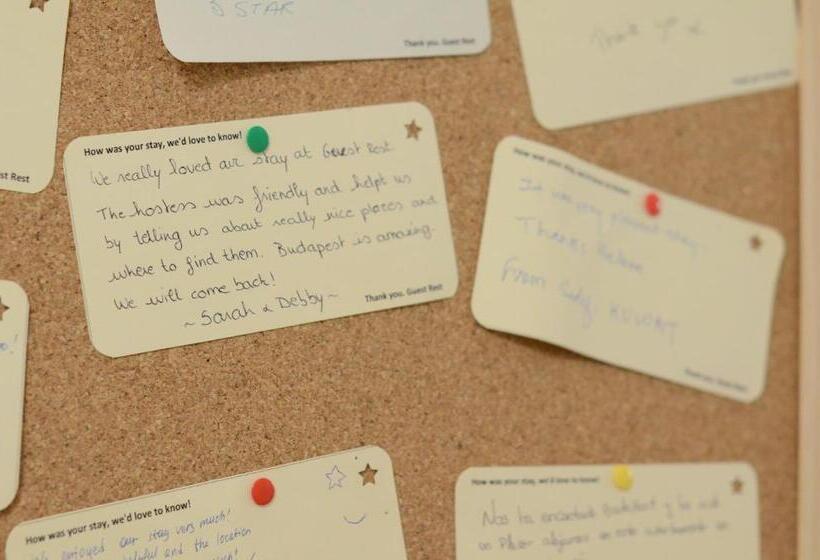 D STAR
Thank you. Guest Rest
Thank you
st Rest
How was your stay, we'd love to know!
We really loved our stay at Guest Rest
The hostess was friendly and helpt us
by telling us about really nice places and
where to find them. Budapest is amazing.
We will come back!
~ Sarah & Debby ~
Thank you. Guest Rest
How was your stay, we'd love to know!
It was very pleasant stay.
Thanks
From KUWAIT
Thank you. Guest Rest
How was your stay, we'd love to know!
We enjoyed our stay very much!
and the location
How was your stay, we'd love to know!
Nos ha encantado Budapest y ha sido